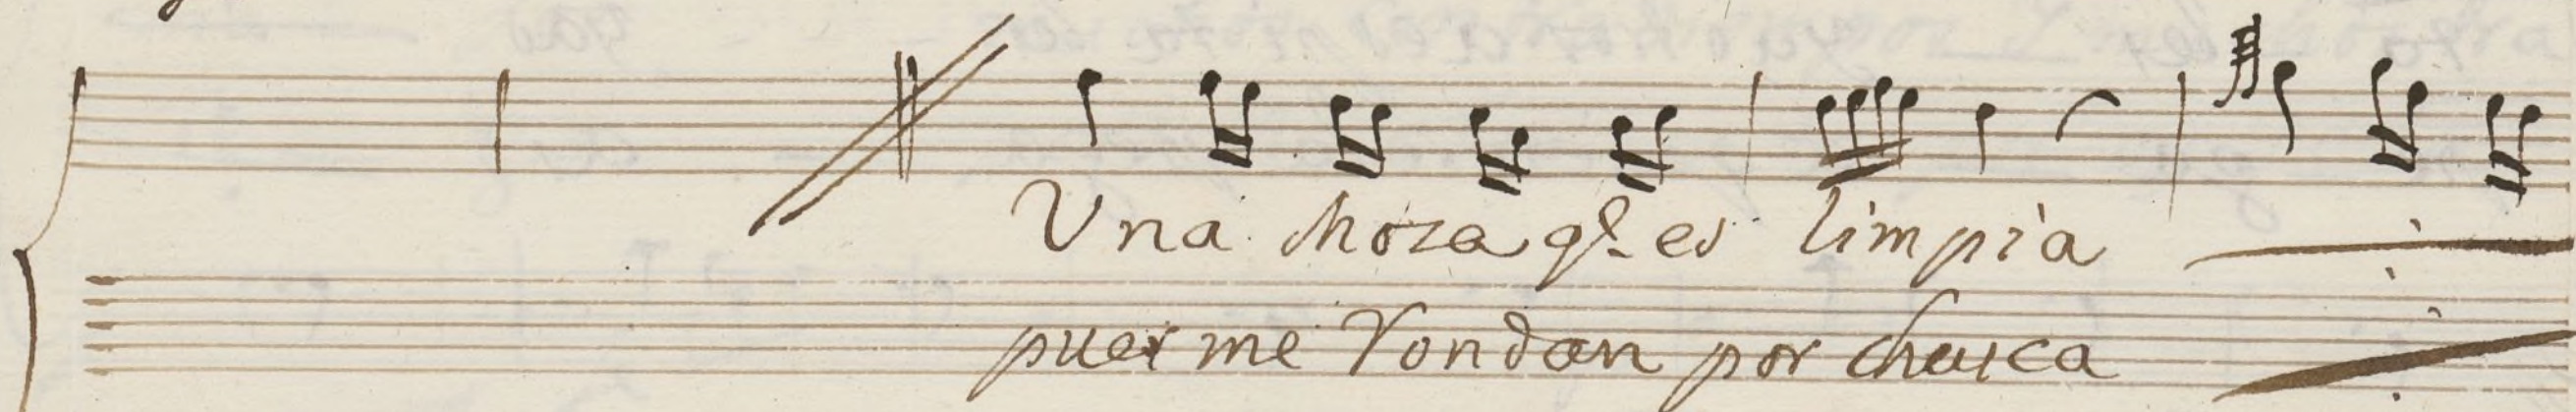 Una Moza qe. es limpia
pues me Rondan por chusca